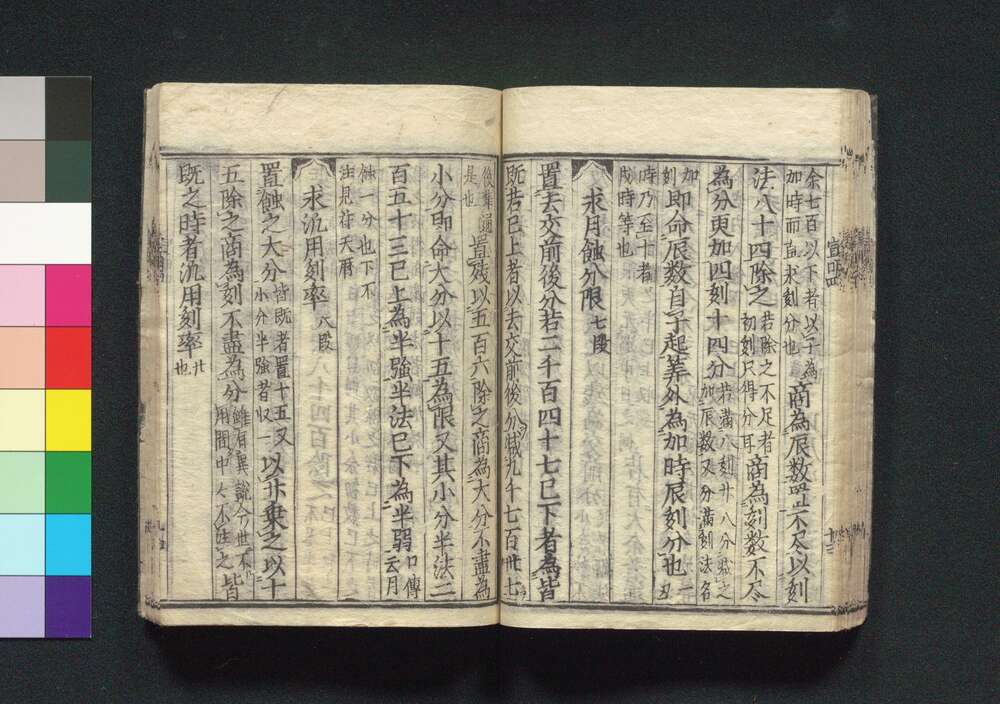 余七百以下者以子為
加時而直求刻分也 商為辰数置不尽以刻
法八十四除之 若除之不足者
初刻只得分耳 商為刻数不尽
為分更加四刻十四分 若满八刻廿八分成之
加辰数又分满刻法名
加一
刻 即命辰数自子起筭外為加時辰刻分也 丑
時乃至十者
戌時等也
求月蝕分限 七段
置去交前後分若二千百四十七已下者為皆
既若已上者以去交前後分減九千七百卅七
後準
是也 置残以五百六除之商為大分不盡為
小分即命大分以十五為限又其小分半法二
百五十三已上為半強半法已下為半弱 口傳
云月
蝕一分也下不
注見待天暦
求汎用刻率 八段
置蝕之大分 皆既者置十五又
小分半強者収一 以廿乗之以十
五除之商為刻不盡為分 雖有異説今世不
用圈中人不注之 皆
既之時者汎用刻率 廿
也
宣明